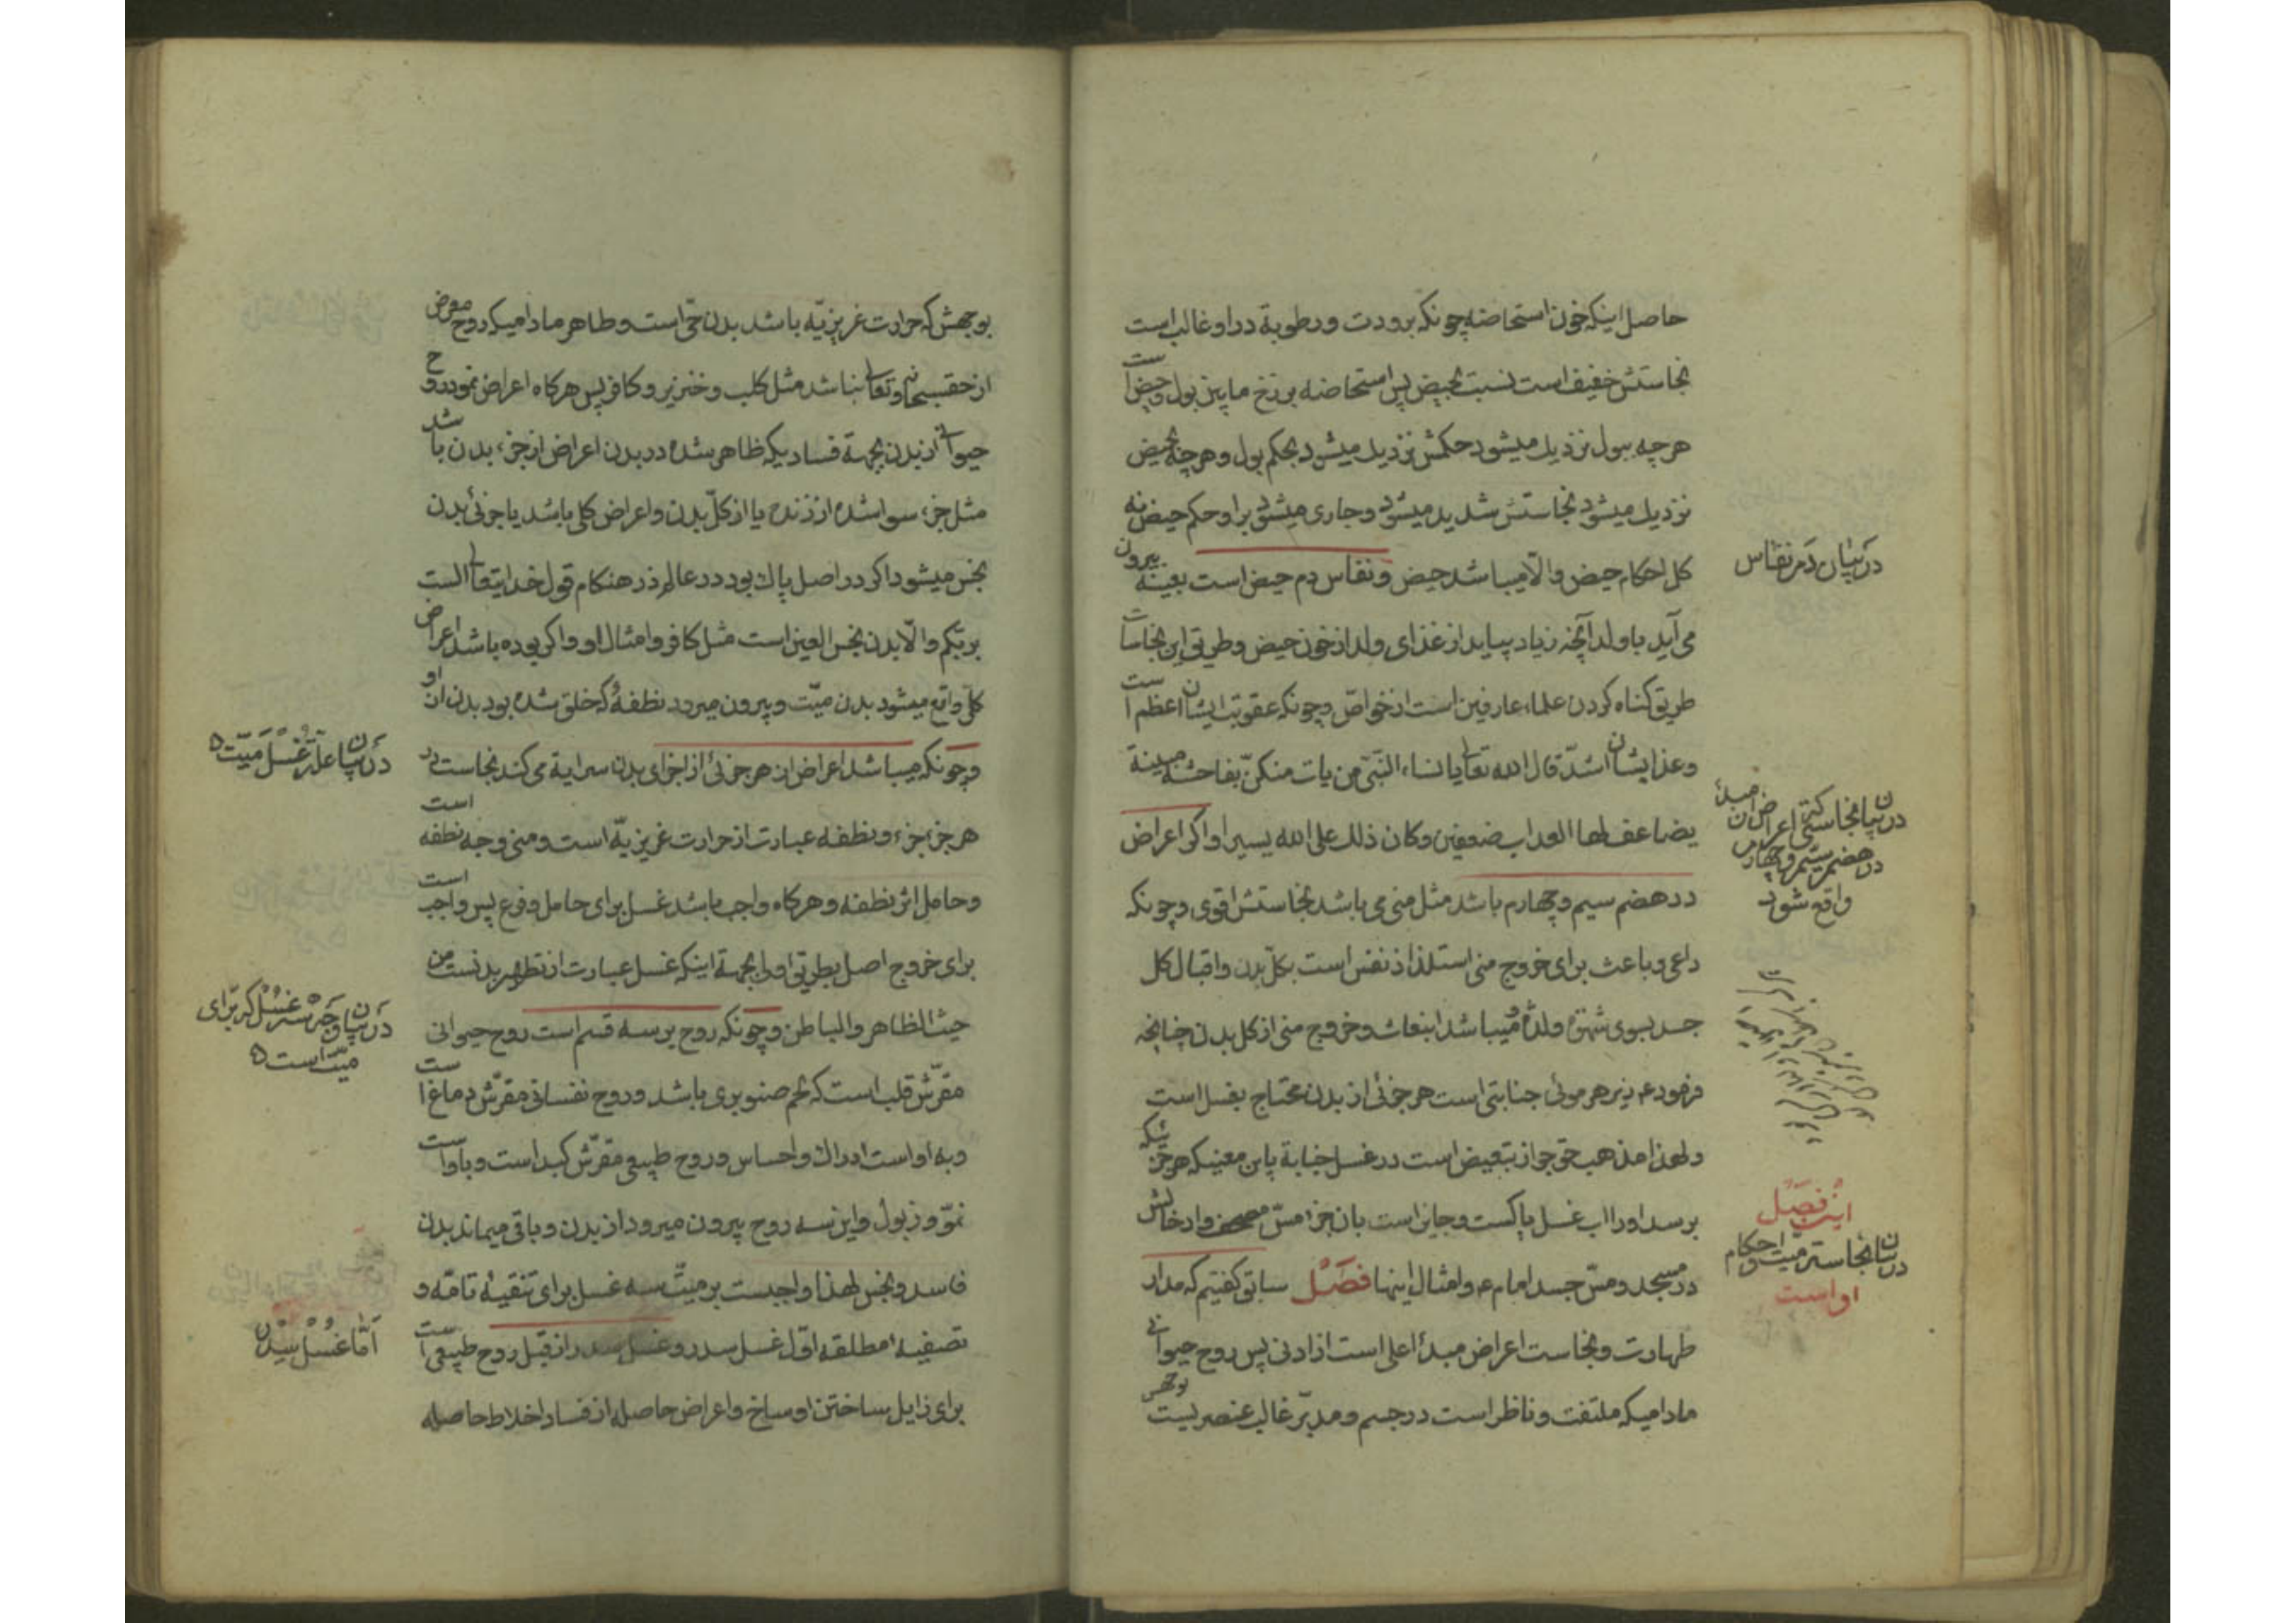 حاصل اینکه خون استحاضه چونکه برودت ورطوبة در او غالب است
نجاستش خفیف است نسبت بحیض پس استحاضه برزخ مابین بول وحیض است
هرچه ببول نزدیك میشود حکمش نزدیك میشود بحکم بول وهرچه بحیض
نزدیك میشود نجاستش شدید میشود وجاری میشود براو حکم حیض نه
کل احکام حیض والّا میباشد حیض ونفاس دم حیض است بعینه بیرون
در بیان دم نفاس
می آید باولد آنچه زیاد بیاید از غذای ولد از خون حیض وطریق این نجاسات
طریق کناه کردن علماء عارفین است از خواصّ وچونکه عقوبت ایشان اعظم است
وعذابشان اشدّ قال الله تعالی یانساء النّبیّ من یات منکنّ بفاحشة مبینة
یضاعف لها العذاب ضعفین وکان ذلك علی الله یسیرا واکر اعراض
در بیان نجاستیکه اعراض از مبدأ
در هضم سیّم وچهارم
واقع شود
در هضم سیم وچهارم باشد مثل منی می باشد نجاستش اقوی وچونکه
داعی وباعث برای خروج منی استلذاذ نفس است بکلّ بدن واقبال کل
جسد بسوی شهوة ولذّة میباشد انبعاث وخروج منی از کل بدن چنانچه
فرمود ع زیر هر موئی جنابتی است هر جزئی از بدن محتاج بغسل است
ولهذا مذهب حق جواز تبعیض است در غسل جنابة باین معنی که هر جزئیکه
برسد اورا اب غسل پاکست وجایز است بان جزء مسّ مصحف وادخالش
در مسجد ومسّ جسد امام ع وامثال اینها فصَل سابق کفتیم که مدار
این فصَل
در بیان نجاست میّت واحکام
او است
طهارت ونجاست اعراض مبدأ اعلی است از ادنی پس روح حیوانی
مادامیکه ملتفت وناظر است در جسم ومدبّر غالب عنصریست بوجهش
بوجهش که حرارت غریزیّه باشد بدن حیّ است وطاهر مادامیکه روح معرض
از حق سبحانه وتعالی نباشد مثل کلب وخنزیر وکافر پس هرکاه اعراض نمود روح
حیوانی از بدن بجهة فسادیکه ظاهر شده در بدن اعراض از جزء بدن باشد
مثل جزء سوا شده از زنده یا از کلّ بدن واعراض کلی باشد یا جزئی بدن
نجس میشود اکر در اصل پاك بود در عالم ذر هنکام قول خدایتعالی الست
بربّکم والّا بدن نجس العین است مثل کافر وامثال او واکر بوده باشد اعراض
کلّی واقع میشود بدن میّت وبیرون میرود نطفهٔ که خلق شده بود بدن از او
در بیان علّت غُسل میّت
وچونکه میباشد اعراض از هر جزئی از اجزای بدن سرایة می کند نجاست در
هر جزء جزء ونطفه عبارت از حرارت غریزیّه است ومنی وجه نطفه است
وحامل اثر نطفه وهرکاه واجب باشد غسل برای حامل وفرع پس واجب است
برای خروج اصل بطریق اولی بجهة اینکه غسل عبارت از تطهیر بدنست من
حیث الظاهر والباطن وچونکه روح بر سه قسم است روح حیوانی
در بیان وجه سه غسل که برای
میّت است
مقرّش قلب است که لحم صنوبری باشد وروح نفسانی مقرّش دماغ است
وبه او است ادراك واحساس وروح طبیعی مقرّش کبد است وباو است
نموّ وذبول واین سه روح بیرون میرود از بدن وباقی میماند بدن
فاسد ونجس لهذا واجبست بر میّت سه غسل برای تنقیهٔ تامّه و
تصفیهٔ مطلقه اوّل غسل سدر وغسل سدر از قبل روح طبیعی است
اَمّا غُسْل سِدْر
برای زایل ساختن اوساخ واعراض حاصله از فساد اخلاط حاصله